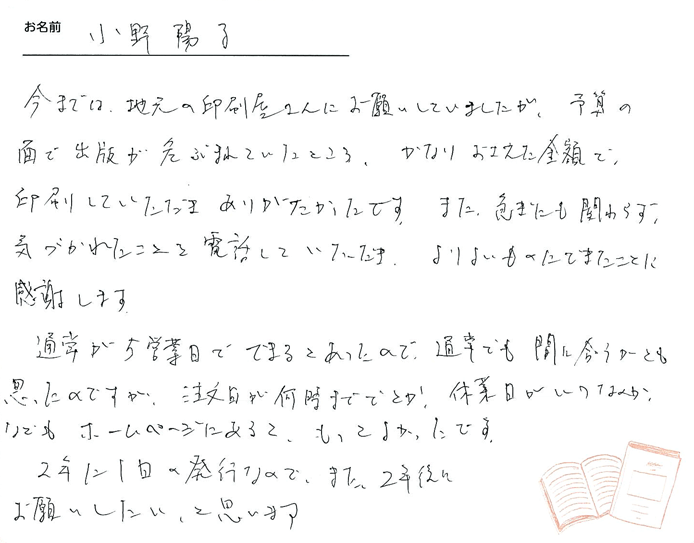 お名前 小野陽子
今までは、地元の印刷屋さんにお願いしていましたが、予算の
面で出版が危ぶまれていたところ、かなりおさえた金額で、
印刷していただき ありがたかったです。また、急ぎにも関わらず、
気づかれたことを電話していただき、よりよいものにできたことに
感謝します。
通常が5営業日でできるとあったので、通常でも間に合うかとも
思ったのですが、注文日が何時まででとか、休業日がいつなのか、
などもホームページにあると、もっとよかったです。
2年に1回の発行なので、また、2年後に
お願いしたい、と思います